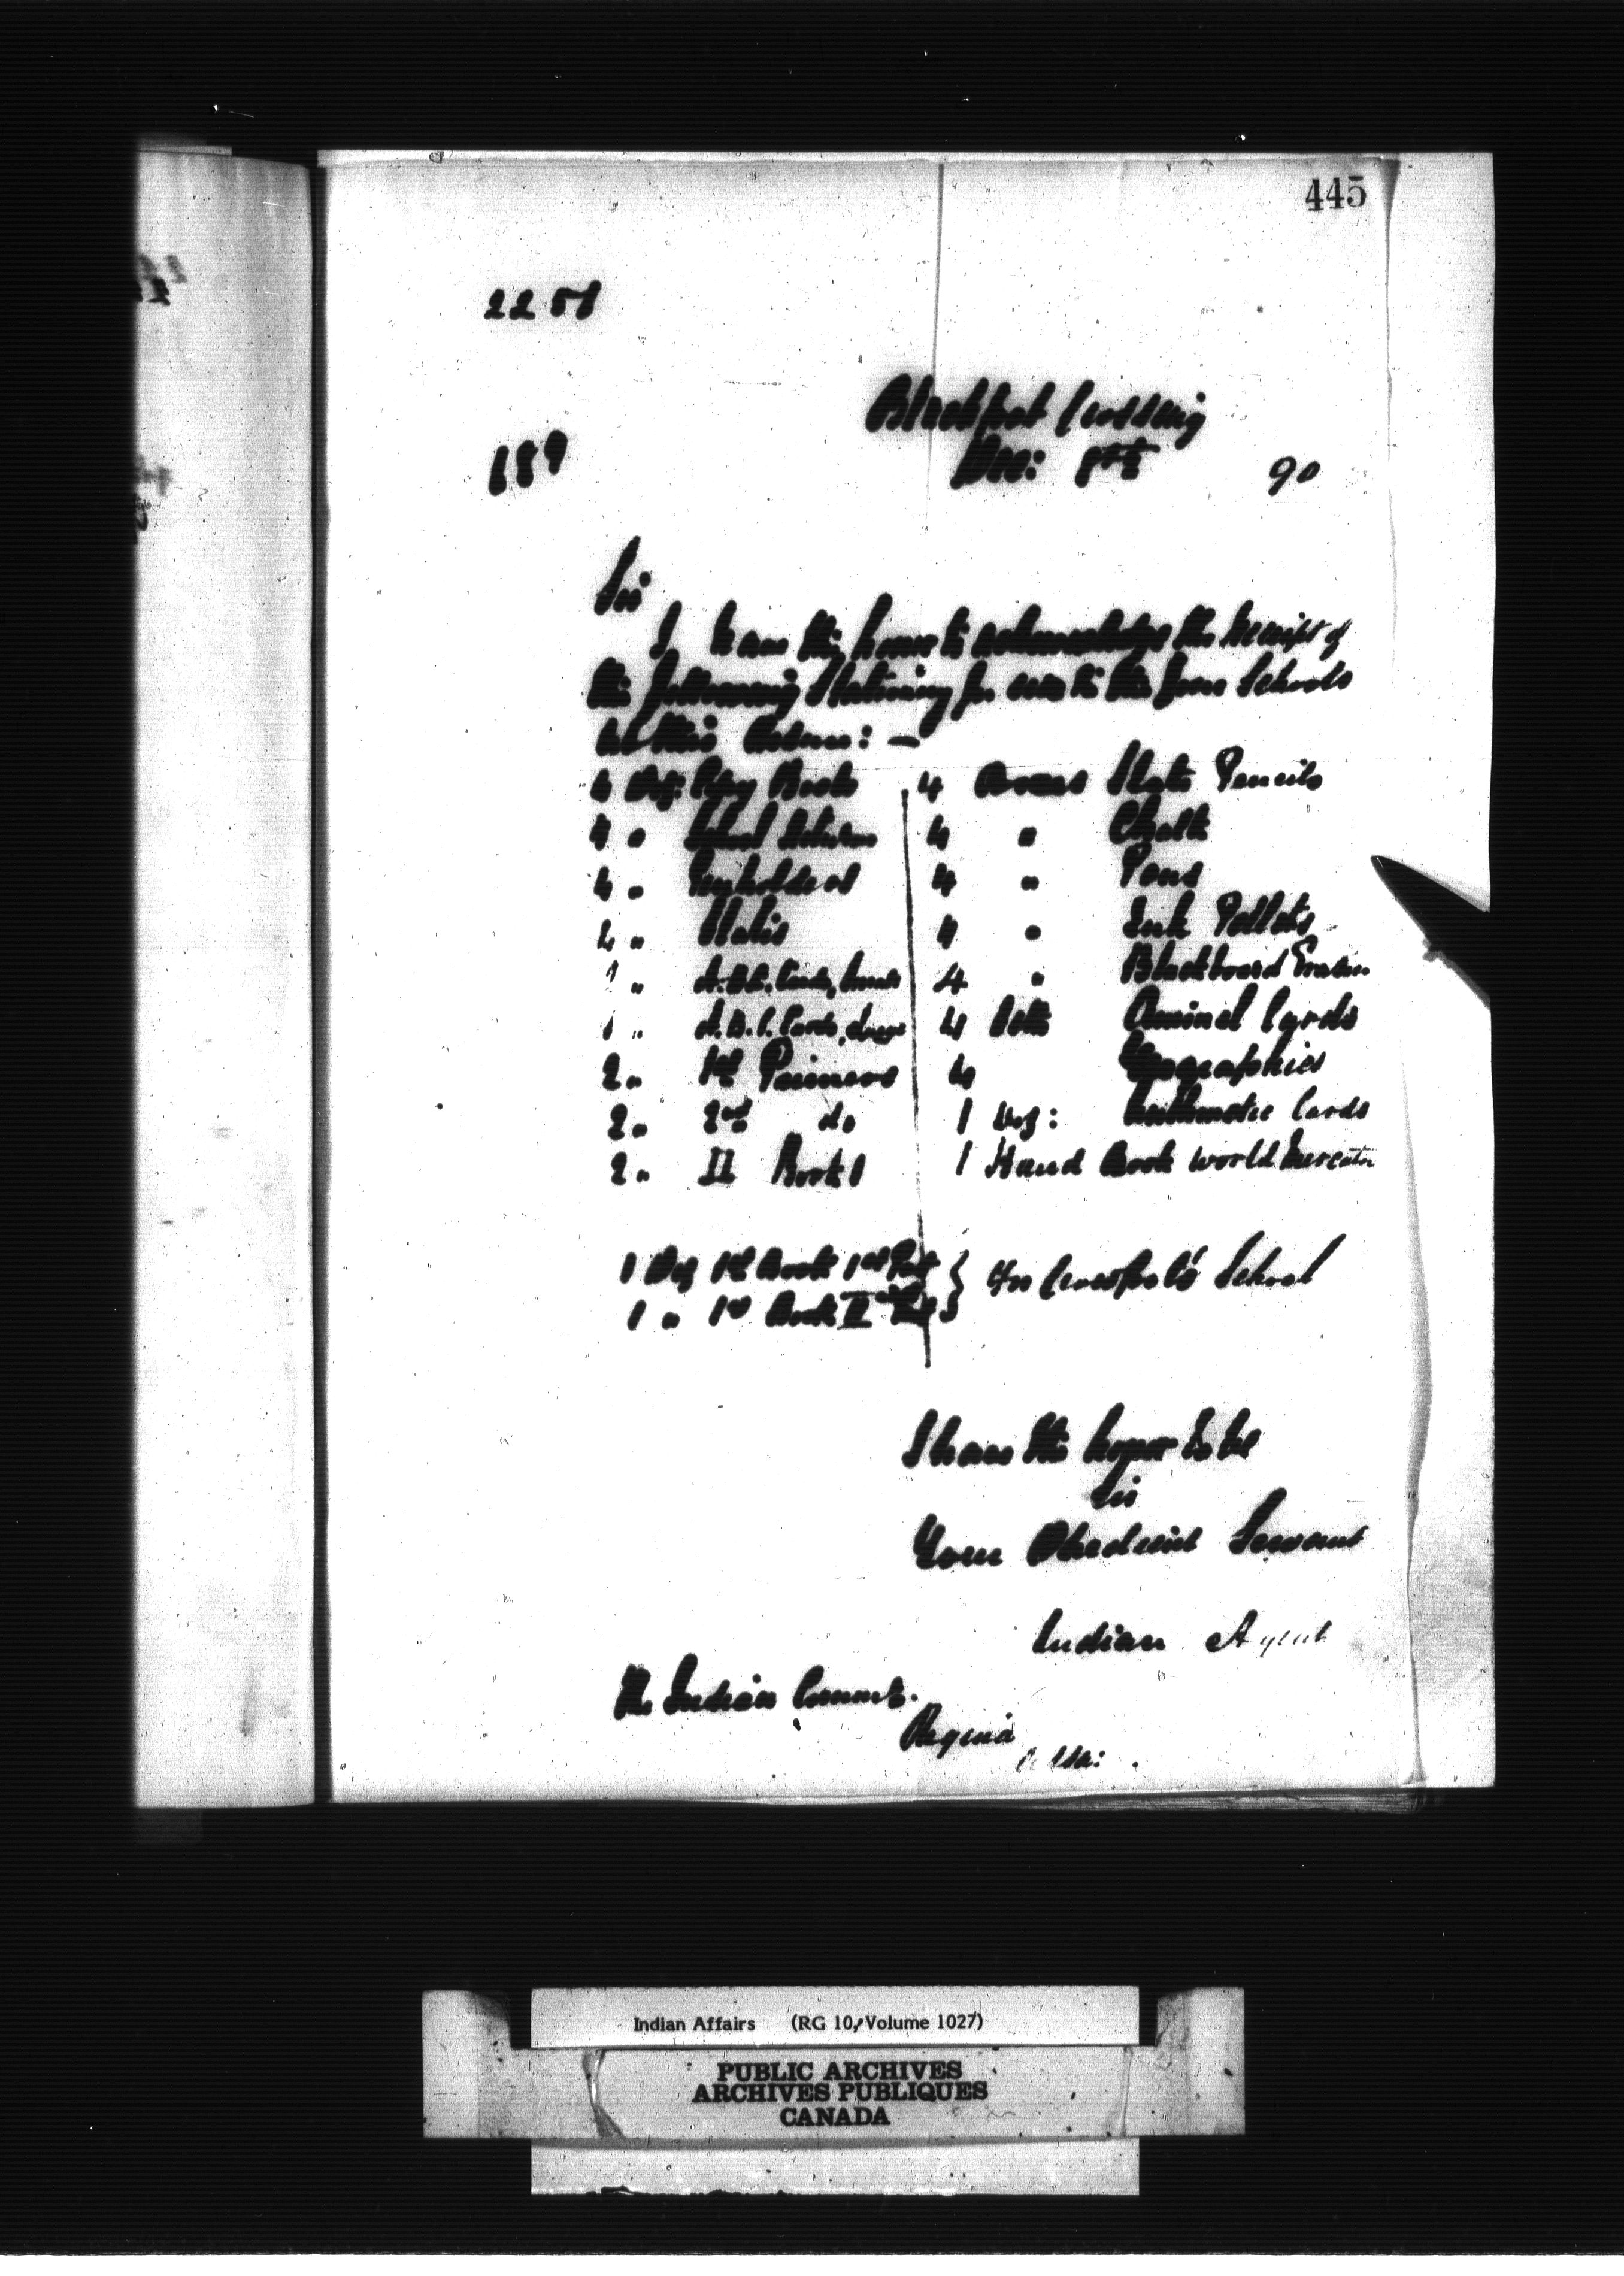 445
22
Blackfoot Crossing
Dec: 8th 90
189
Sir
I have the honor to acknowledge the receipt of
the following Stationery for use in the four Schools
at this :—
4 Doz: Copy Books
4 " School
4 " Penholders
4 " Slates
1 " A.B.C. Cards, Small
1 " A.B.C. Cards, large
2 " 1st Primers
2 " 2nd do
2 " II Books
4 Boxes Slate Pencils
4 " Chalk
4 " Pens
4 " Ink Pellets
4 " Blackboard Erasers
4 Setts Animal Cards
4 Geographies
1 Doz: Arithmetic Cards
1 Hand Book World Mercator
1 Doz 1st Book 1st Part
1 " 1st Book II Part
} For Crowfoot's School
I have the honor to be
Sir
Your Obedient Servant
Indian Agent
The Indian Commr.
Regina
Assa:
Indian Affairs (RG 10, Volume 1027)
PUBLIC ARCHIVES
ARCHIVES PUBLIQUES
CANADA